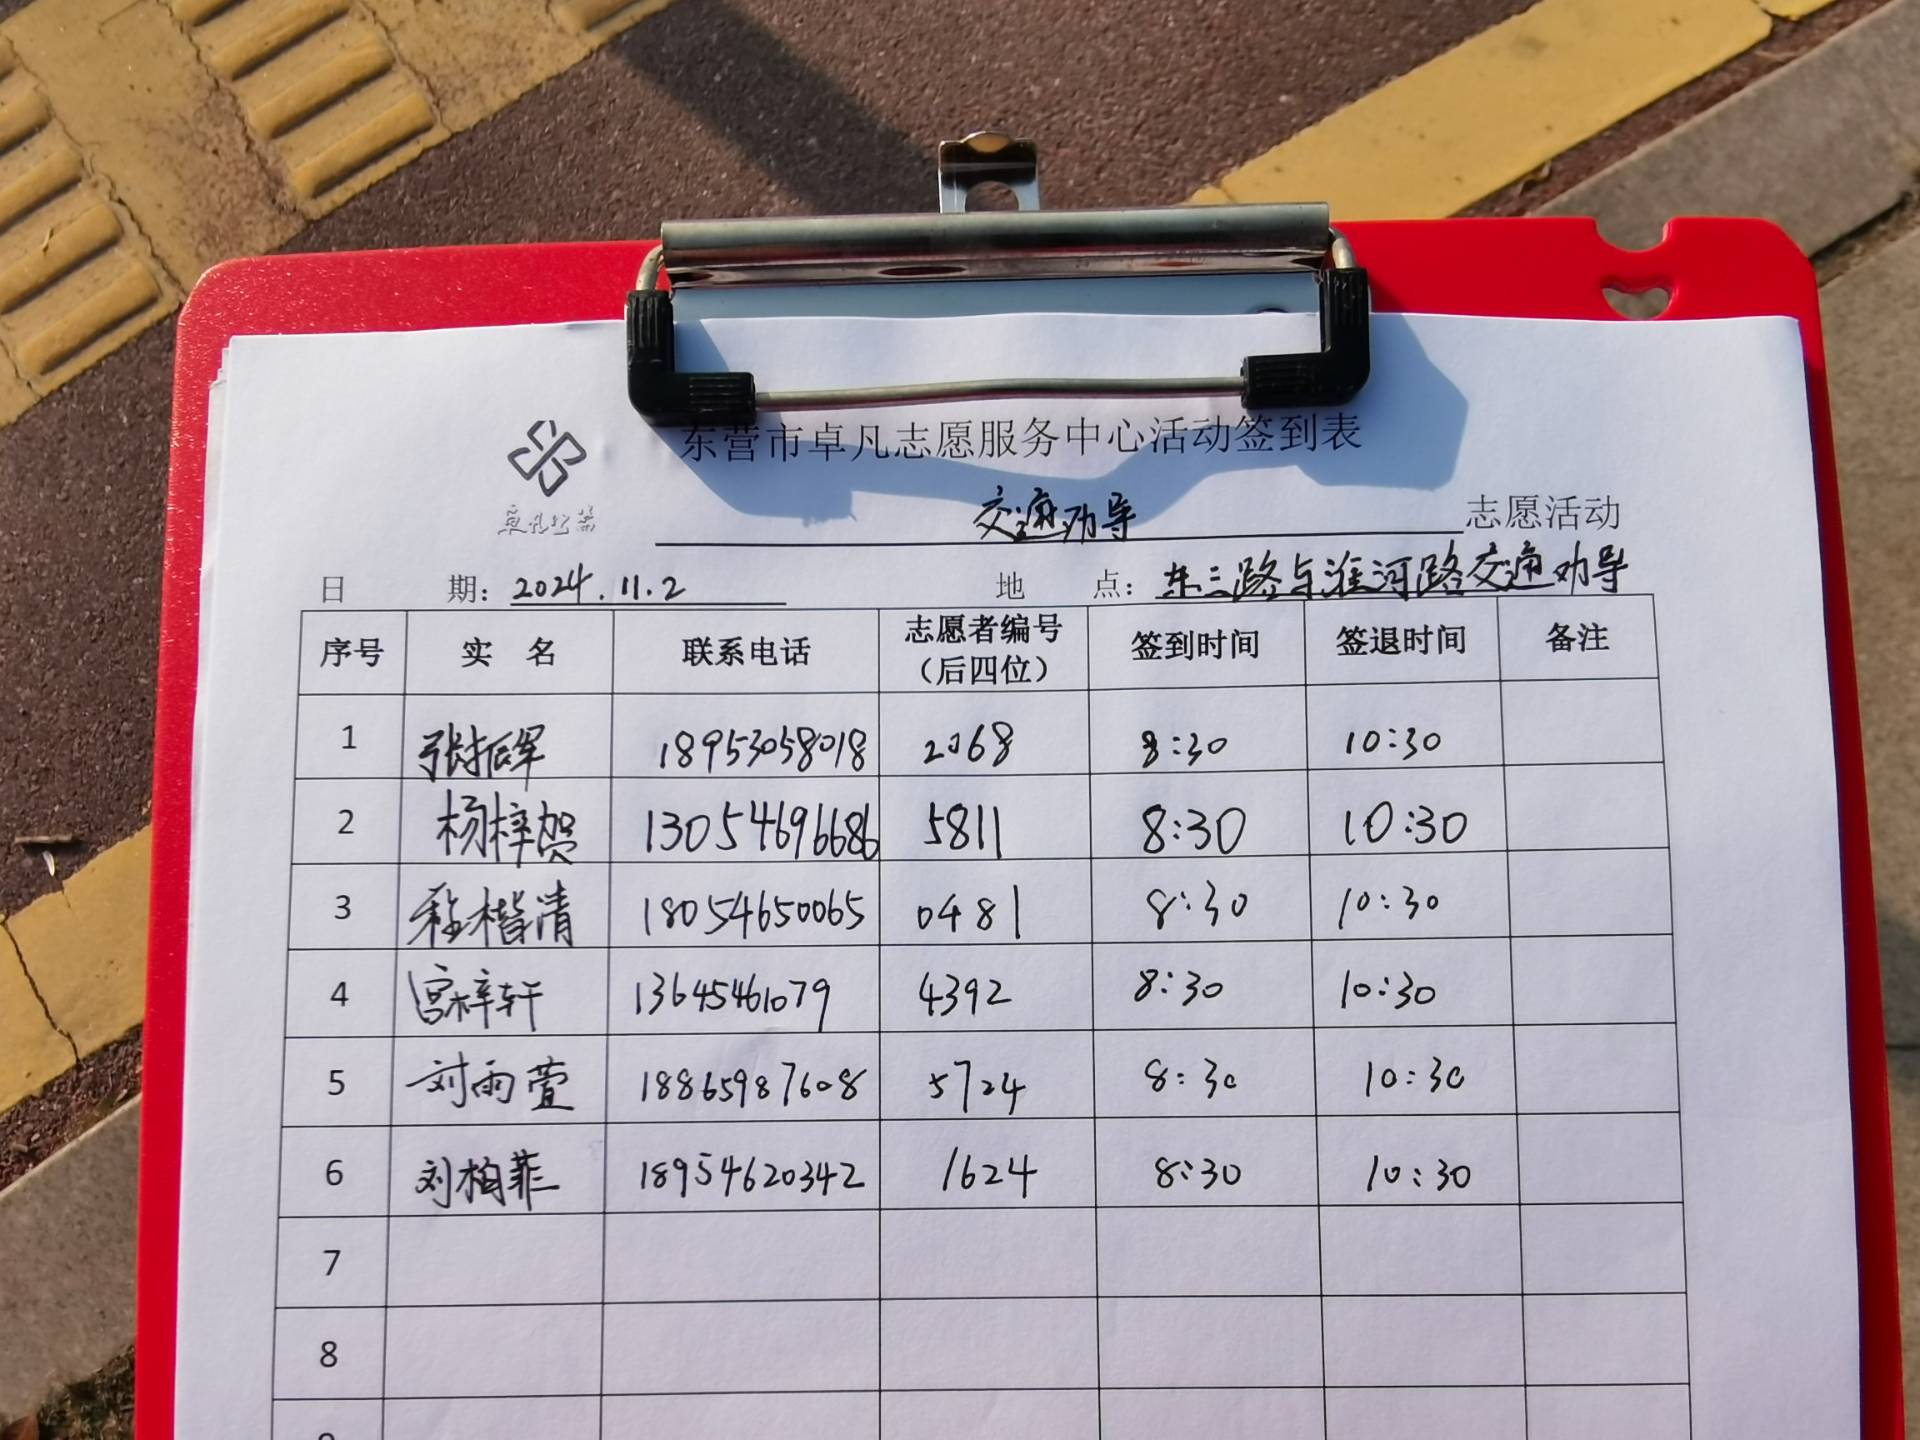 东营市卓凡志愿服务中心活动签到表
交通劝导 志愿活动
日 期：2024.11.2 地 点：东三路与淮河路交通劝导
序号 实 名 联系电话 志愿者编号（后四位） 签到时间 签退时间 备注
1 张振军 18953058018 2068 8:30 10:30
2 杨梓贺 13054696686 5811 8:30 10:30
3 楷清 18054650065 0481 8:30 10:30
4 宫梓轩 13645461079 4392 8:30 10:30
5 刘雨萱 18865987608 5724 8:30 10:30
6 刘柏菲 18954620342 1624 8:30 10:30
7
8